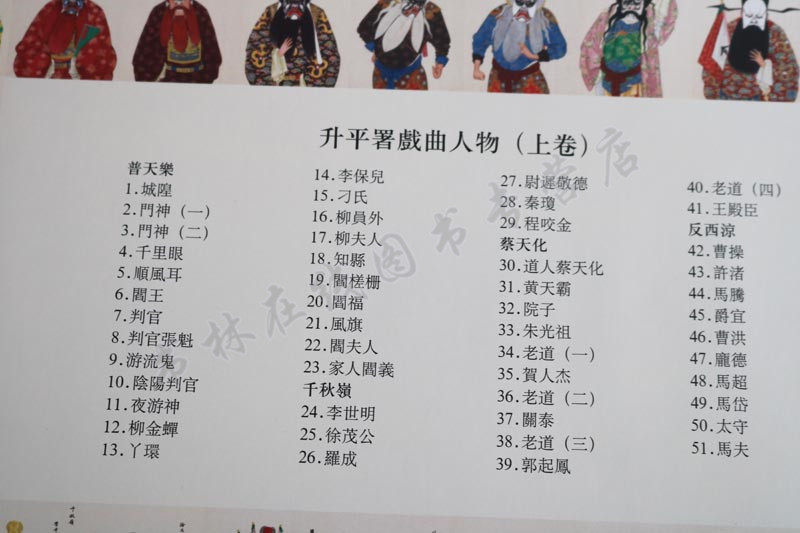 升平署戲曲人物（上卷）
普天樂
1.城隍
2.門神（一）
3.門神（二）
4.千里眼
5.順風耳
6.閻王
7.判官
8.判官張魁
9.游流鬼
10.陰陽判官
11.夜游神
12.柳金蟬
13.丫環
14.李保兒
15.刁氏
16.柳員外
17.柳夫人
18.知縣
19.閻槎栅
20.閻福
21.風旗
22.閻夫人
23.家人閻義
千秋嶺
24.李世明
25.徐茂公
26.羅成
27.尉遲敬德
28.秦瓊
29.程咬金
蔡天化
30.道人蔡天化
31.黄天霸
32.院子
33.朱光祖
34.老道（一）
35.賀人杰
36.老道（二）
37.關泰
38.老道（三）
39.郭起鳳
40.老道（四）
41.王殿臣
反西凉
42.曹操
43.許渚
44.馬騰
45.爵宜
46.曹洪
47.龐德
48.馬超
49.馬岱
50.太守
51.馬夫